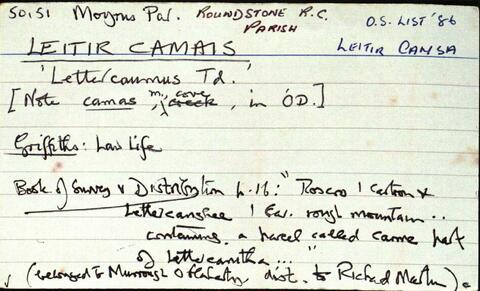 50,51 Moyrus Par. ROUNDSTONE R.C. PARISH
O.S. LIST '86
LEITIR CAMAIS
LEITIR CAMSA
'Lettercammus Td.'
[Note camas, m, cove creek, in ÓD.]
Griffiths: Law Life
Book of Survey & Distribution p.16: "Roscroo 1 Cartron &
Lettercanshee 1 Car. rough mountain ..
containing a parcel called Carrne part
of Lettercamtha ..."
(belonged to Murrough O Flaherty dist. to Richard Martin).